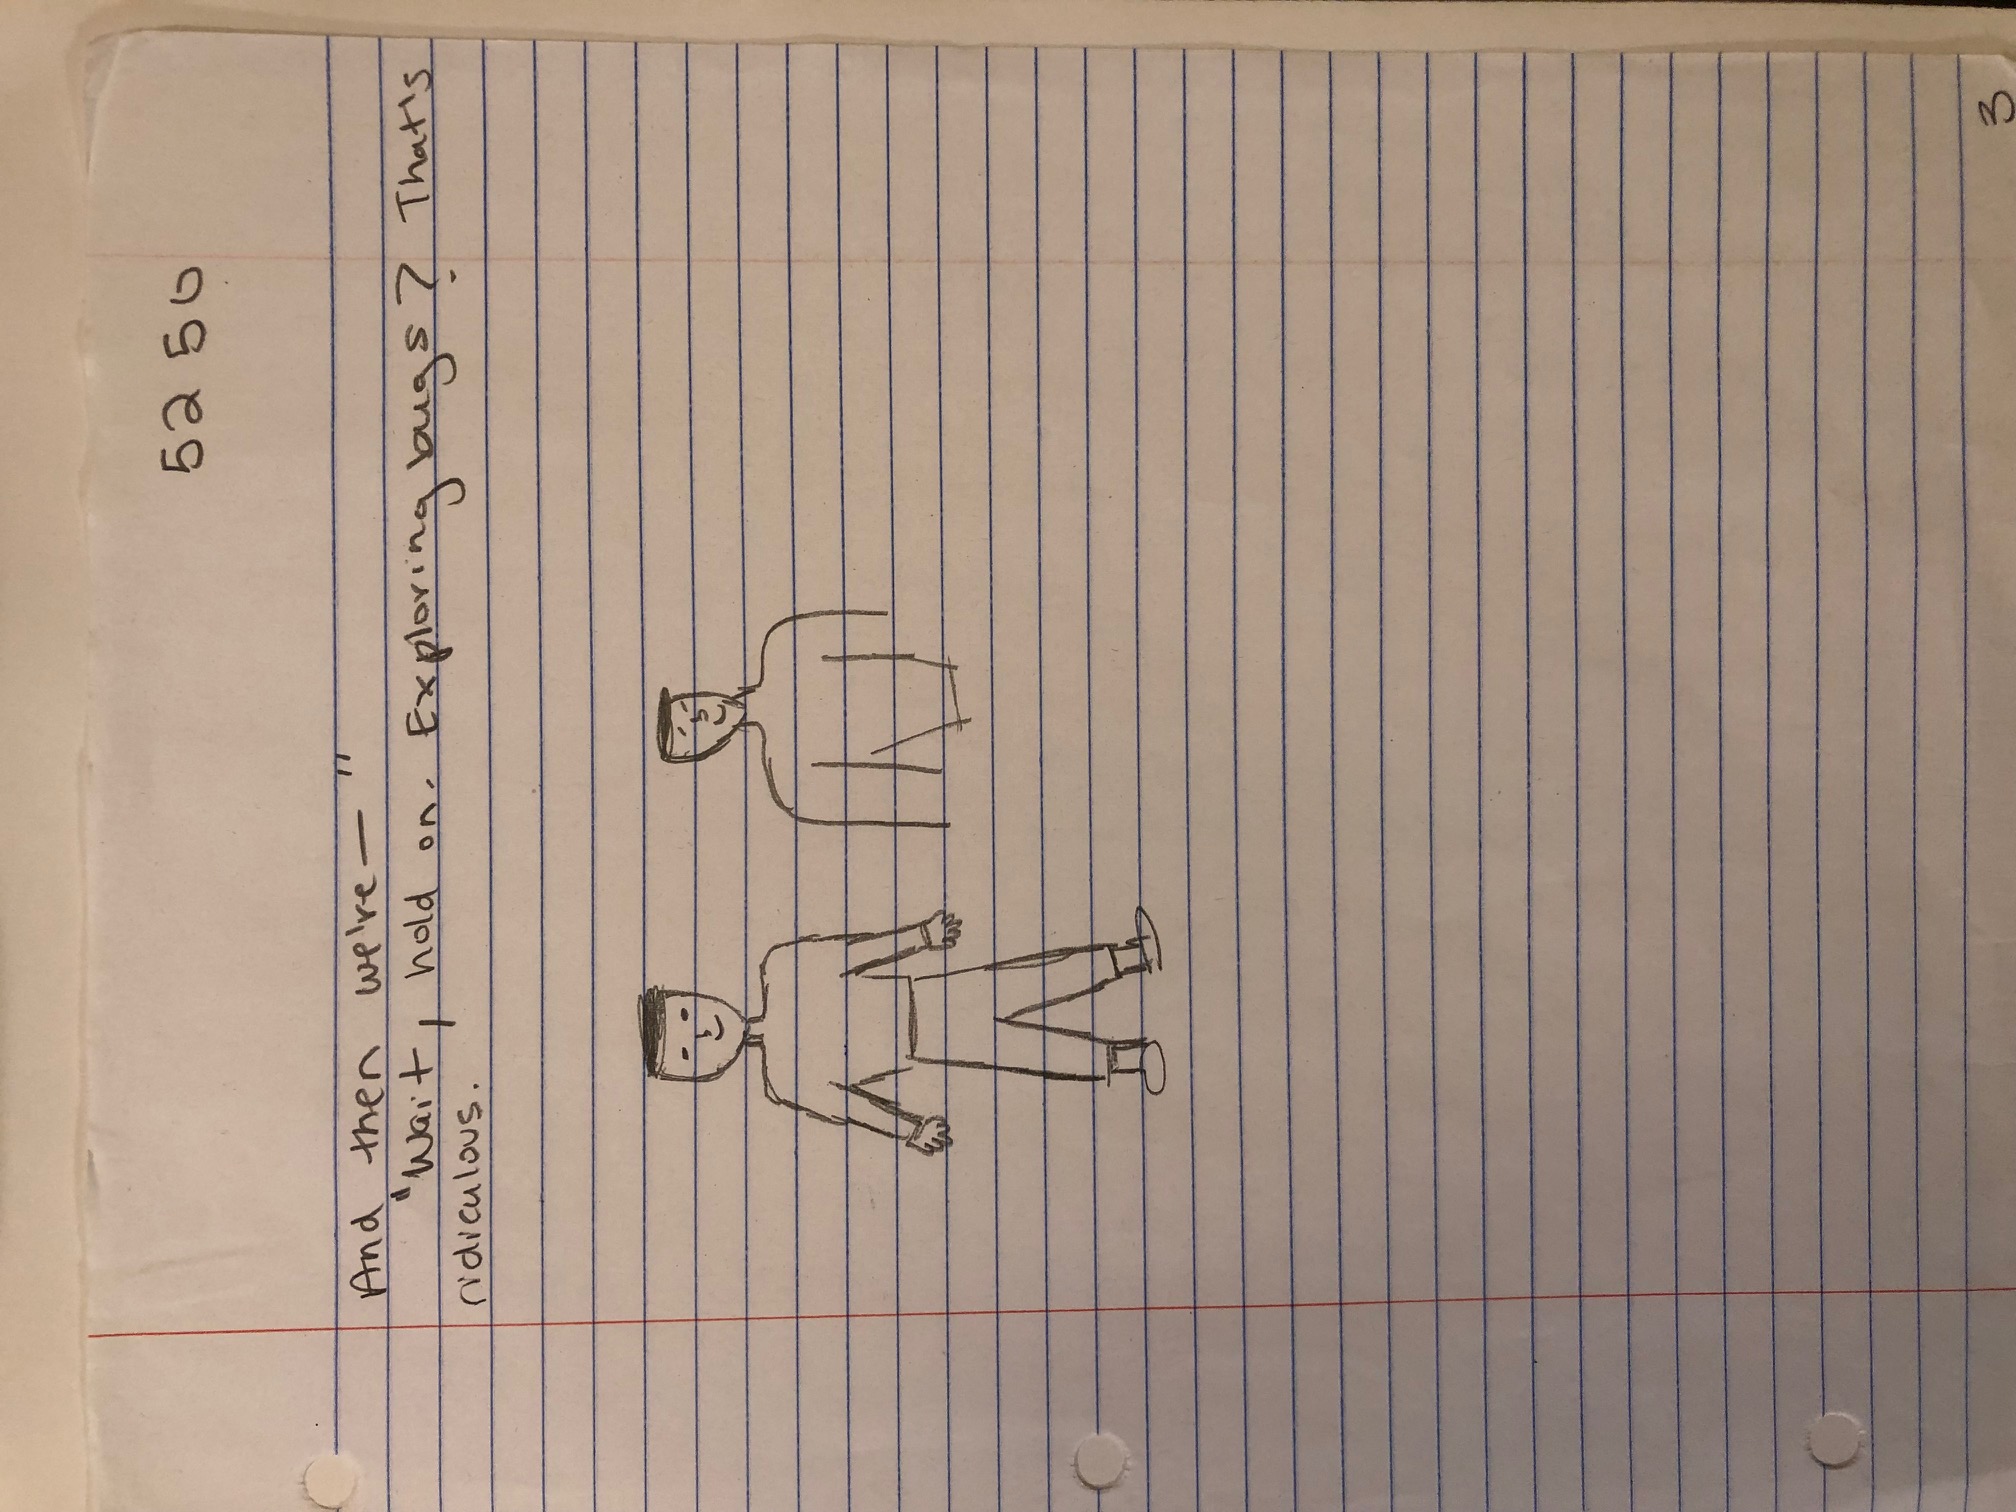 52 50
And then we're— "
"Wait, hold on. Exploring bugs? That's
ridiculous.
3